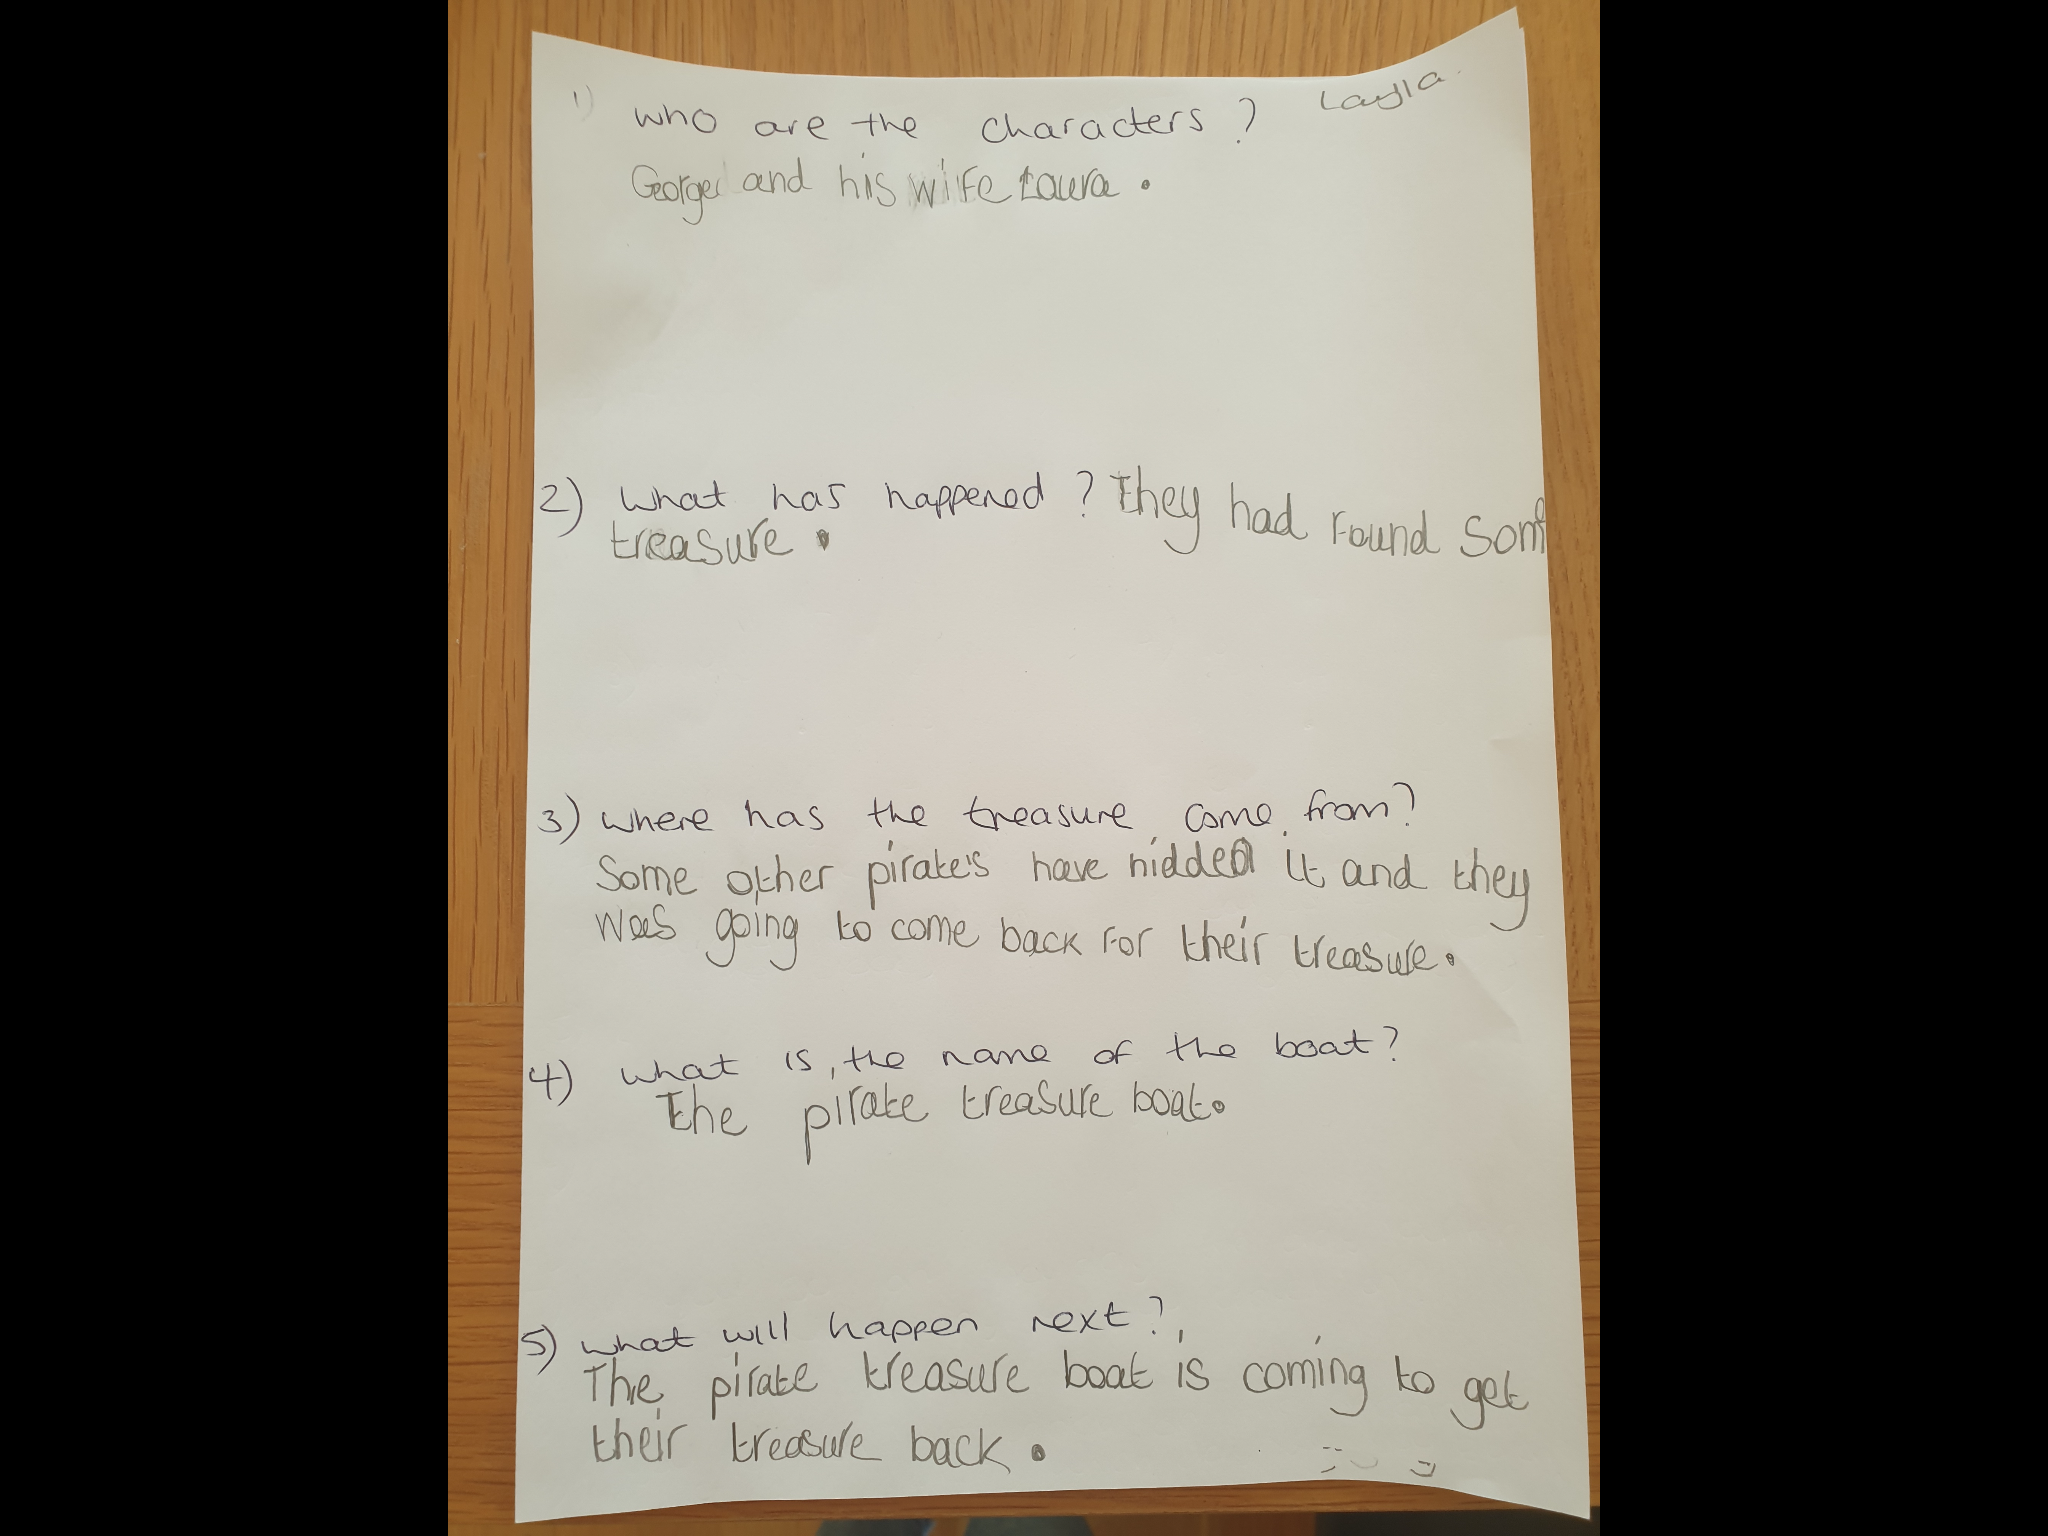 Layla.
1) who are the characters?
George and his wife Laura.
2) what has happened? They had found some
treasure.
3) where has the treasure come from?
Some other pirate's have hidded it and they
was going to come back for their treasure.
4) what is the name of the boat?
The pirate treasure boat.
5) what will happen next?
The pirate treasure boat is coming to get
their treasure back.